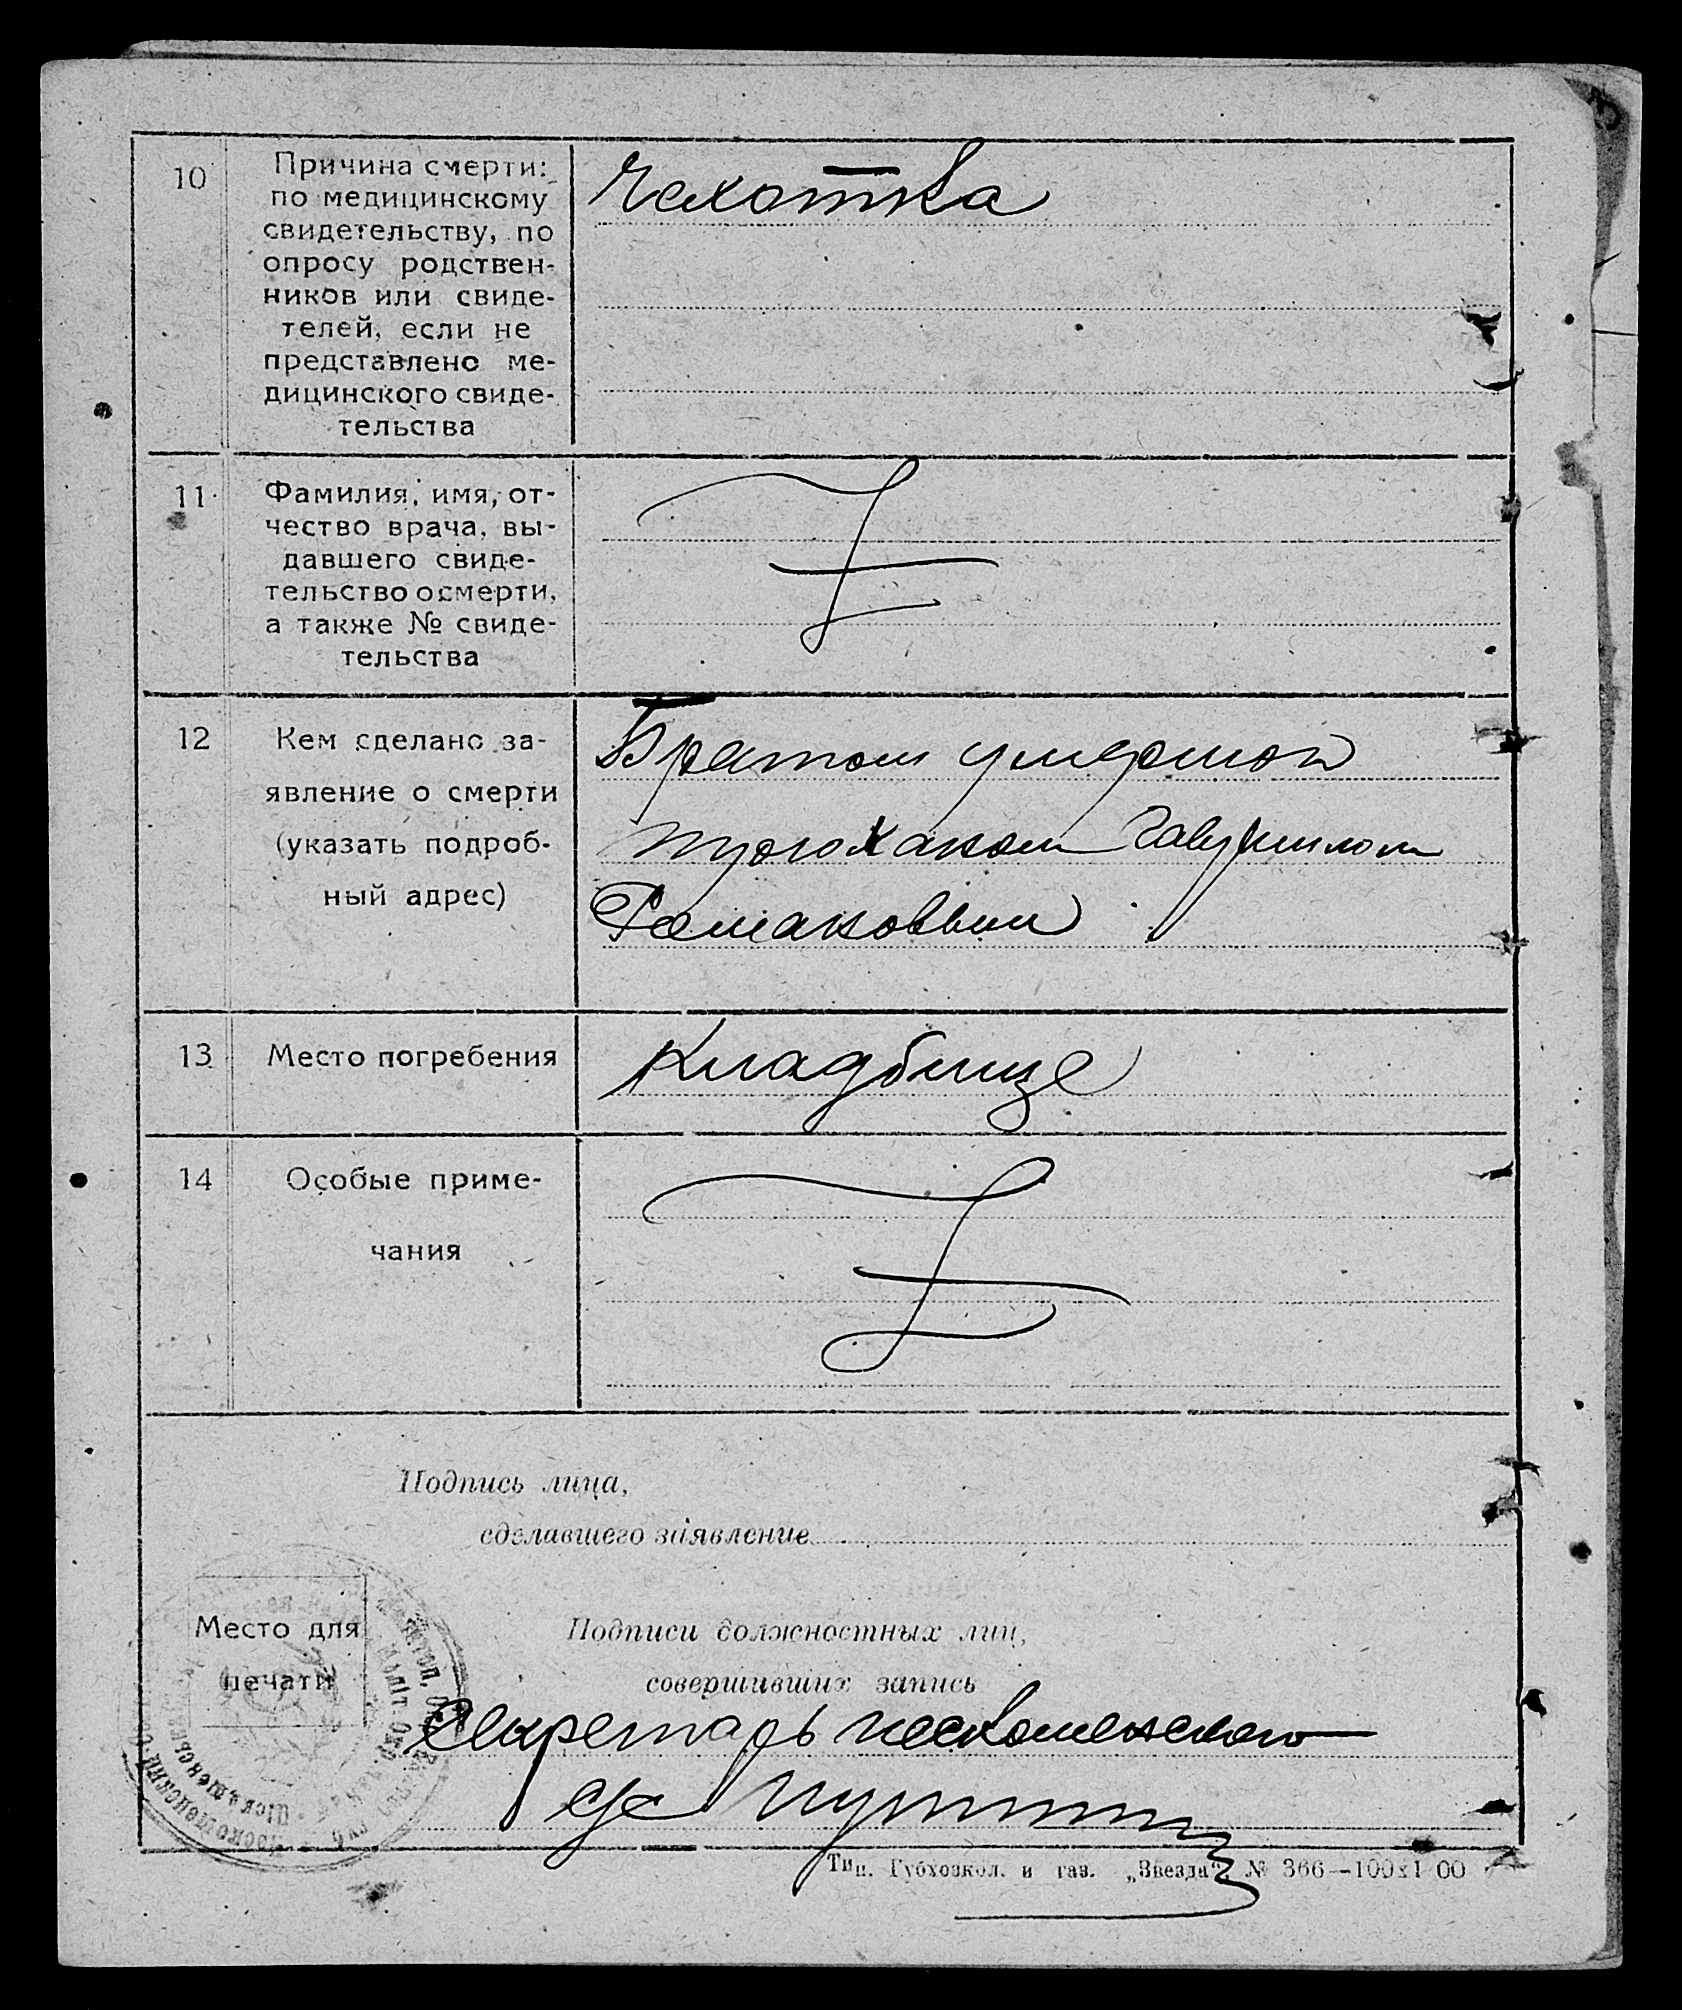 10
Причина смерти:
по медицинскому
свидетельству, по
опросу родствен-
ников или свиде-
телей, если не
представлено ме-
дицинского свиде-
тельства
Чахотка
11
Фамилия, имя, от-
чество врача, вы-
давшего свиде-
тельство о смерти,
а также № свиде-
тельства
12
Кем сделано за-
явление о смерти
(указать подроб-
ный адрес)
Братом умершой
Гаврилом
13
Место погребения
Кладбище
14
Особые приме-
чания
Подпись лица,
сделавшего заявление
Место для
печати
Подписи должностных лиц,
совершивших запись
Секретарь
с/с
Тип. Губхозкол. и газ. „Звезда“. № 366—100х1 00